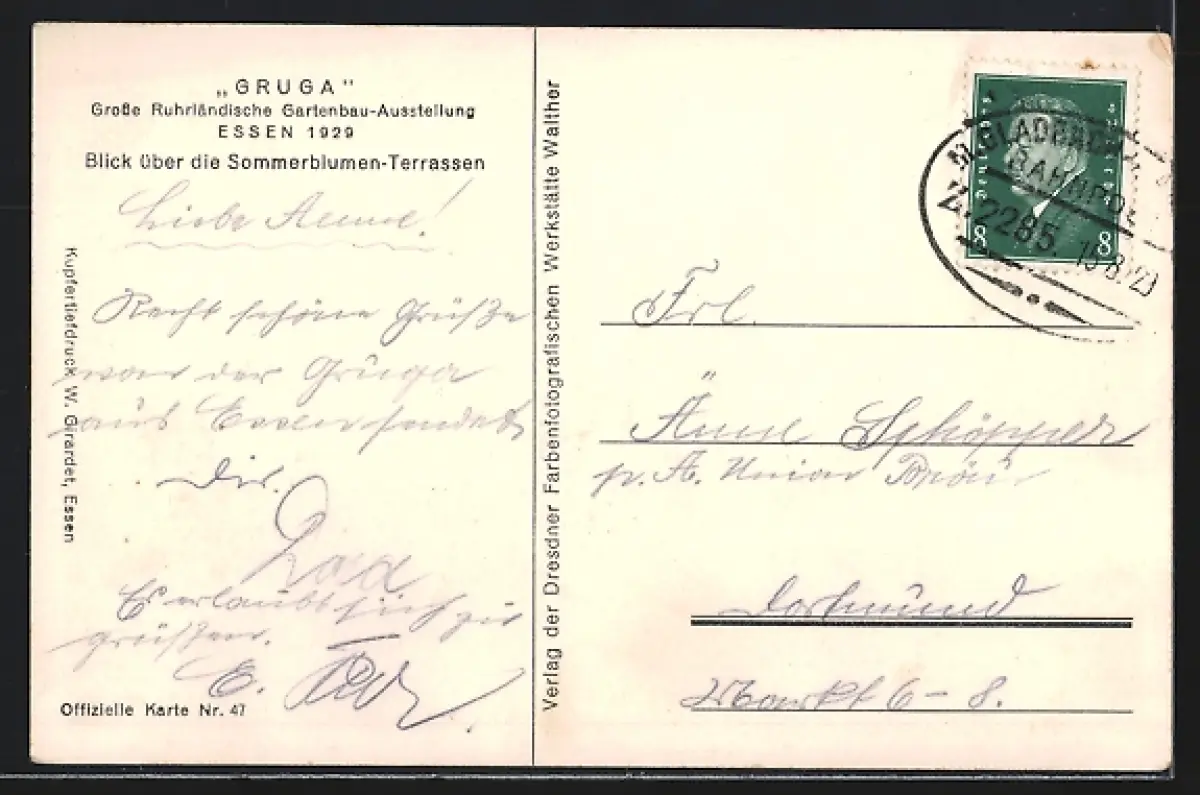 „GRUGA"
Große Ruhrländische Gartenbau-Ausstellung
ESSEN 1929
Blick über die Sommerblumen-Terrassen
Liebe Aenne!
Recht schöne Grüße
von der Gruga
aus Essen sendet
Dir.
Es erlaubt sich zu
grüßen.
E.
Offizielle Karte Nr. 47
Kupfertiefdruck W. Girardet, Essen
Verlag der Dresdner Farbenfotografischen Werkstätte Walther
8 8
M.GLADBACH
BAHNPO
Z.2285.
Frl.
Änne Schöpper
p. A. Union Bräu
Dortmund
Markt 6-8.